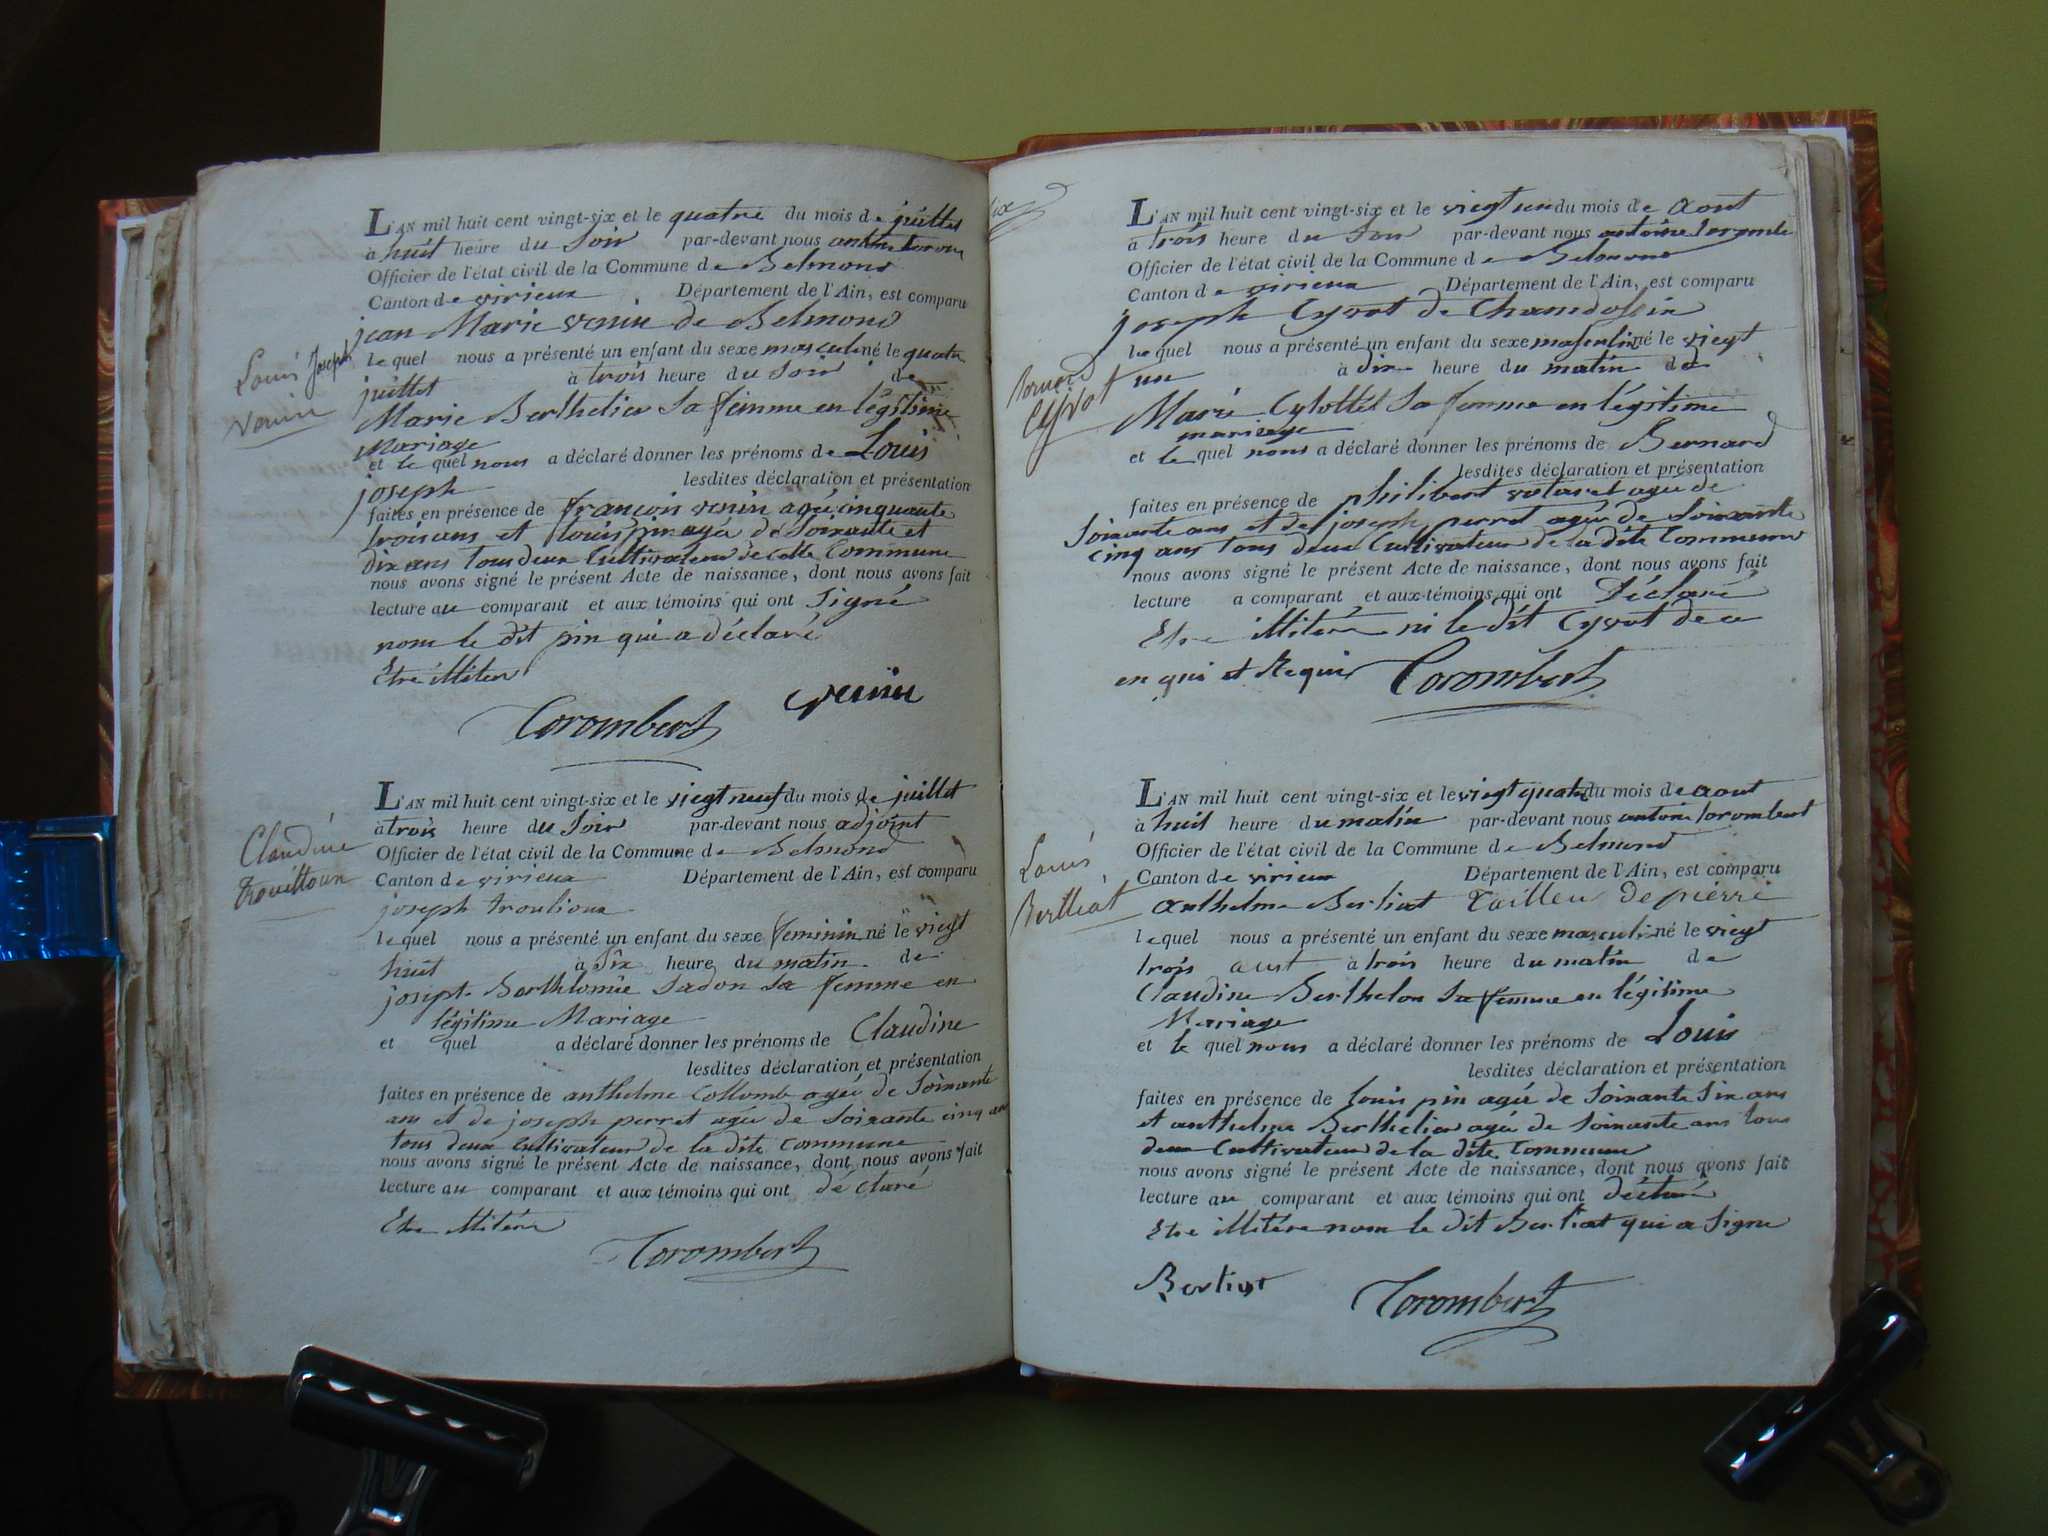 L'AN mil huit cent vingt-six et le quatre du mois de juillet
à huit heure du Soir par-devant nous
Officier de l'état civil de la Commune de Belmond
Canton de virieux Département de l'Ain, est comparu
jean Marie venin de Belmond
Louis Joseph
venin
lequel nous a présenté un enfant du sexe masculin né le quatre
juillet à trois heure du Soir de
Marie Berthelier Sa femme en légitime
Mariage
et le quel nous a déclaré donner les prénoms de Louis
joseph lesdites déclaration et présentation
faites en présence de françois venin agé cinquante
trois ans et louis pin agé de Soixante et
dix ans tous deux Cultivateur de Cette Commune
nous avons signé le présent Acte de naissance, dont nous avons fait
lecture au comparant et aux témoins qui ont Signé
nom le dit pin qui a déclaré
Etre illiter
venin
Torombert
L'AN mil huit cent vingt-six et le viegt neuf du mois de juillet
à trois heure du Soir par-devant nous adjoint
Officier de l'état civil de la Commune de Belmond
Canton de virieux Département de l'Ain, est comparu
Claudine
Trouilloux
joseph troulioux
lequel nous a présenté un enfant du sexe feminin né le viegt
huit à Six heure du matin de
josept Barthlomie Sadon Sa femme en
légitime Mariage
et quel a déclaré donner les prénoms de Claudine
lesdites déclaration et présentation
faites en présence de anthelme Collomb agé de Soixante
ans et de joseph perret agé de Soixante cinq ans
tous deux Cultivateur de la dite Commune
nous avons signé le présent Acte de naissance, dont nous avons fait
lecture au comparant et aux témoins qui ont déclaré
Etre illitére
Torombert
L'AN mil huit cent vingt-six et le viegt un du mois de aout
à trois heure du Soir par-devant nous antoine torombert
Officier de l'état civil de la Commune de Belmond
Canton de virieux Département de l'Ain, est comparu
joseph Cyvot de Chamdossin
lequel nous a présenté un enfant du sexe masculin né le viegt
Bernard
Cyvot
un à dix heure du matin de
Marie Sa femme en légitime
mariage
et le quel nous a déclaré donner les prénoms de Bernard
lesdites déclaration et présentation
faites en présence de philibert agé de
Soixante ans et de joseph perret agé de Soixante
cinq ans tous deux Cultivateur de la dite Commune
nous avons signé le présent Acte de naissance, dont nous avons fait
lecture a comparant et aux témoins qui ont Déclaré
Etre illitére ni le dit Cyvot de ce
en qui et Requis Torombert
L'AN mil huit cent vingt-six et le viegt quatre du mois de aout
à huit heure du matin par-devant nous antoine torombert
Officier de l'état civil de la Commune de Belmond
Canton de virieux Département de l'Ain, est comparu
Louis
Berlliat
anthelme Berliat Tailleu De pierre
lequel nous a présenté un enfant du sexe masculin né le viegt
trois aust à trois heure du matin de
Claudine Berthelon Sa femme en légitime
Mariage
et le quel nous a déclaré donner les prénoms de Louis
lesdites déclaration et présentation
faites en présence de louis pin agé de Soixante Six ans
et anthelme Berthelier agé de Soixante ans tous
deux Cultivateur de la dite Commune
nous avons signé le présent Acte de naissance, dont nous avons fait
lecture au comparant et aux témoins qui ont déclaré
Etre illitére nom le dit Berliat qui a Signe
Berliat Torombert